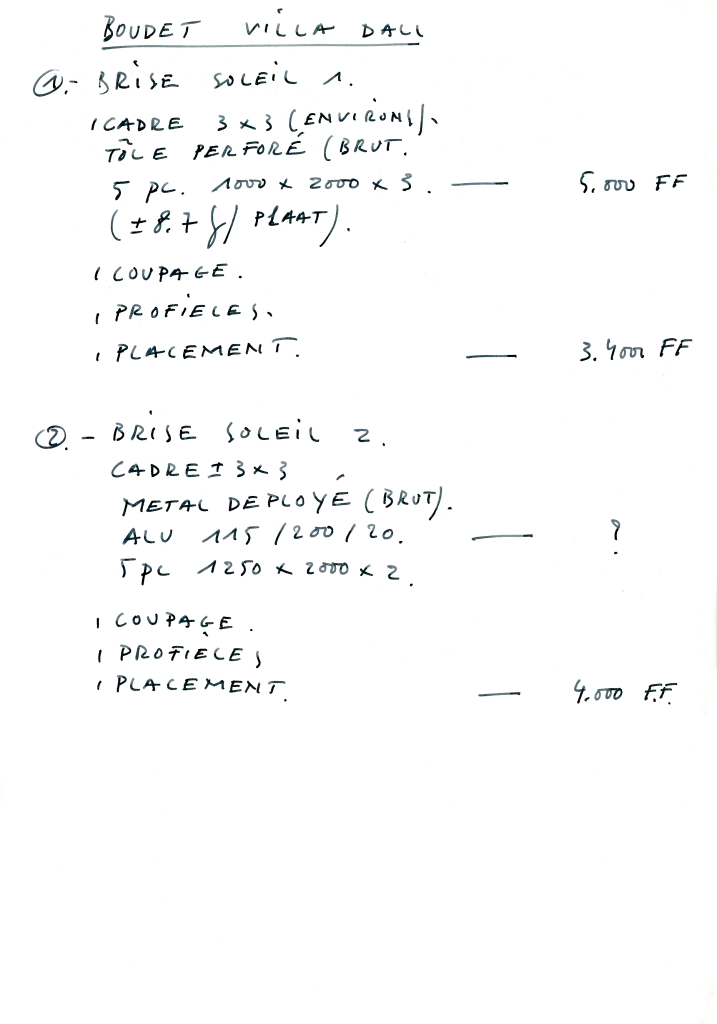 BOUDET VILLA DALL
1.- BRISE SOLEIL 1.
1 CADRE 3 x 3 (ENVIRONS).
TÔLE PERFORÉ (BRUT.
5 pc. 1000 x 2000 x 3. — 5.000 FF
(± 8.7 / PLAAT).
1 COUPAGE.
1 PROFIELES.
1 PLACEMENT. — 3.400 FF
2.- BRISE SOLEIL 2.
CADRE ± 3 x 3
METAL DEPLOYÉ (BRUT).
ALU 115 / 200 / 20. — ?
5 pc 1250 x 2000 x 2.
1 COUPAGE.
1 PROFIELES
1 PLACEMENT. — 4.000 F.F.